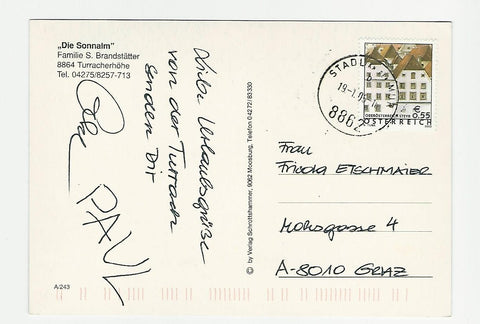 „Die Sonnalm"
Familie S. Brandstätter
8864 Turracherhöhe
Tel. 04275/8257-713
Liebe Urlaubsgrüße
von der Turrach
senden Dir
PAUL
A-243
© by Verlag Schrottshammer, 9062 Moosburg, Telefon 0 42 72 / 83 3 30
STADL
8862
0.55
ÖSTERREICH
Frau
Frieda ETSCHMAIER
Mohsgasse 4
A-8010 GRAZ